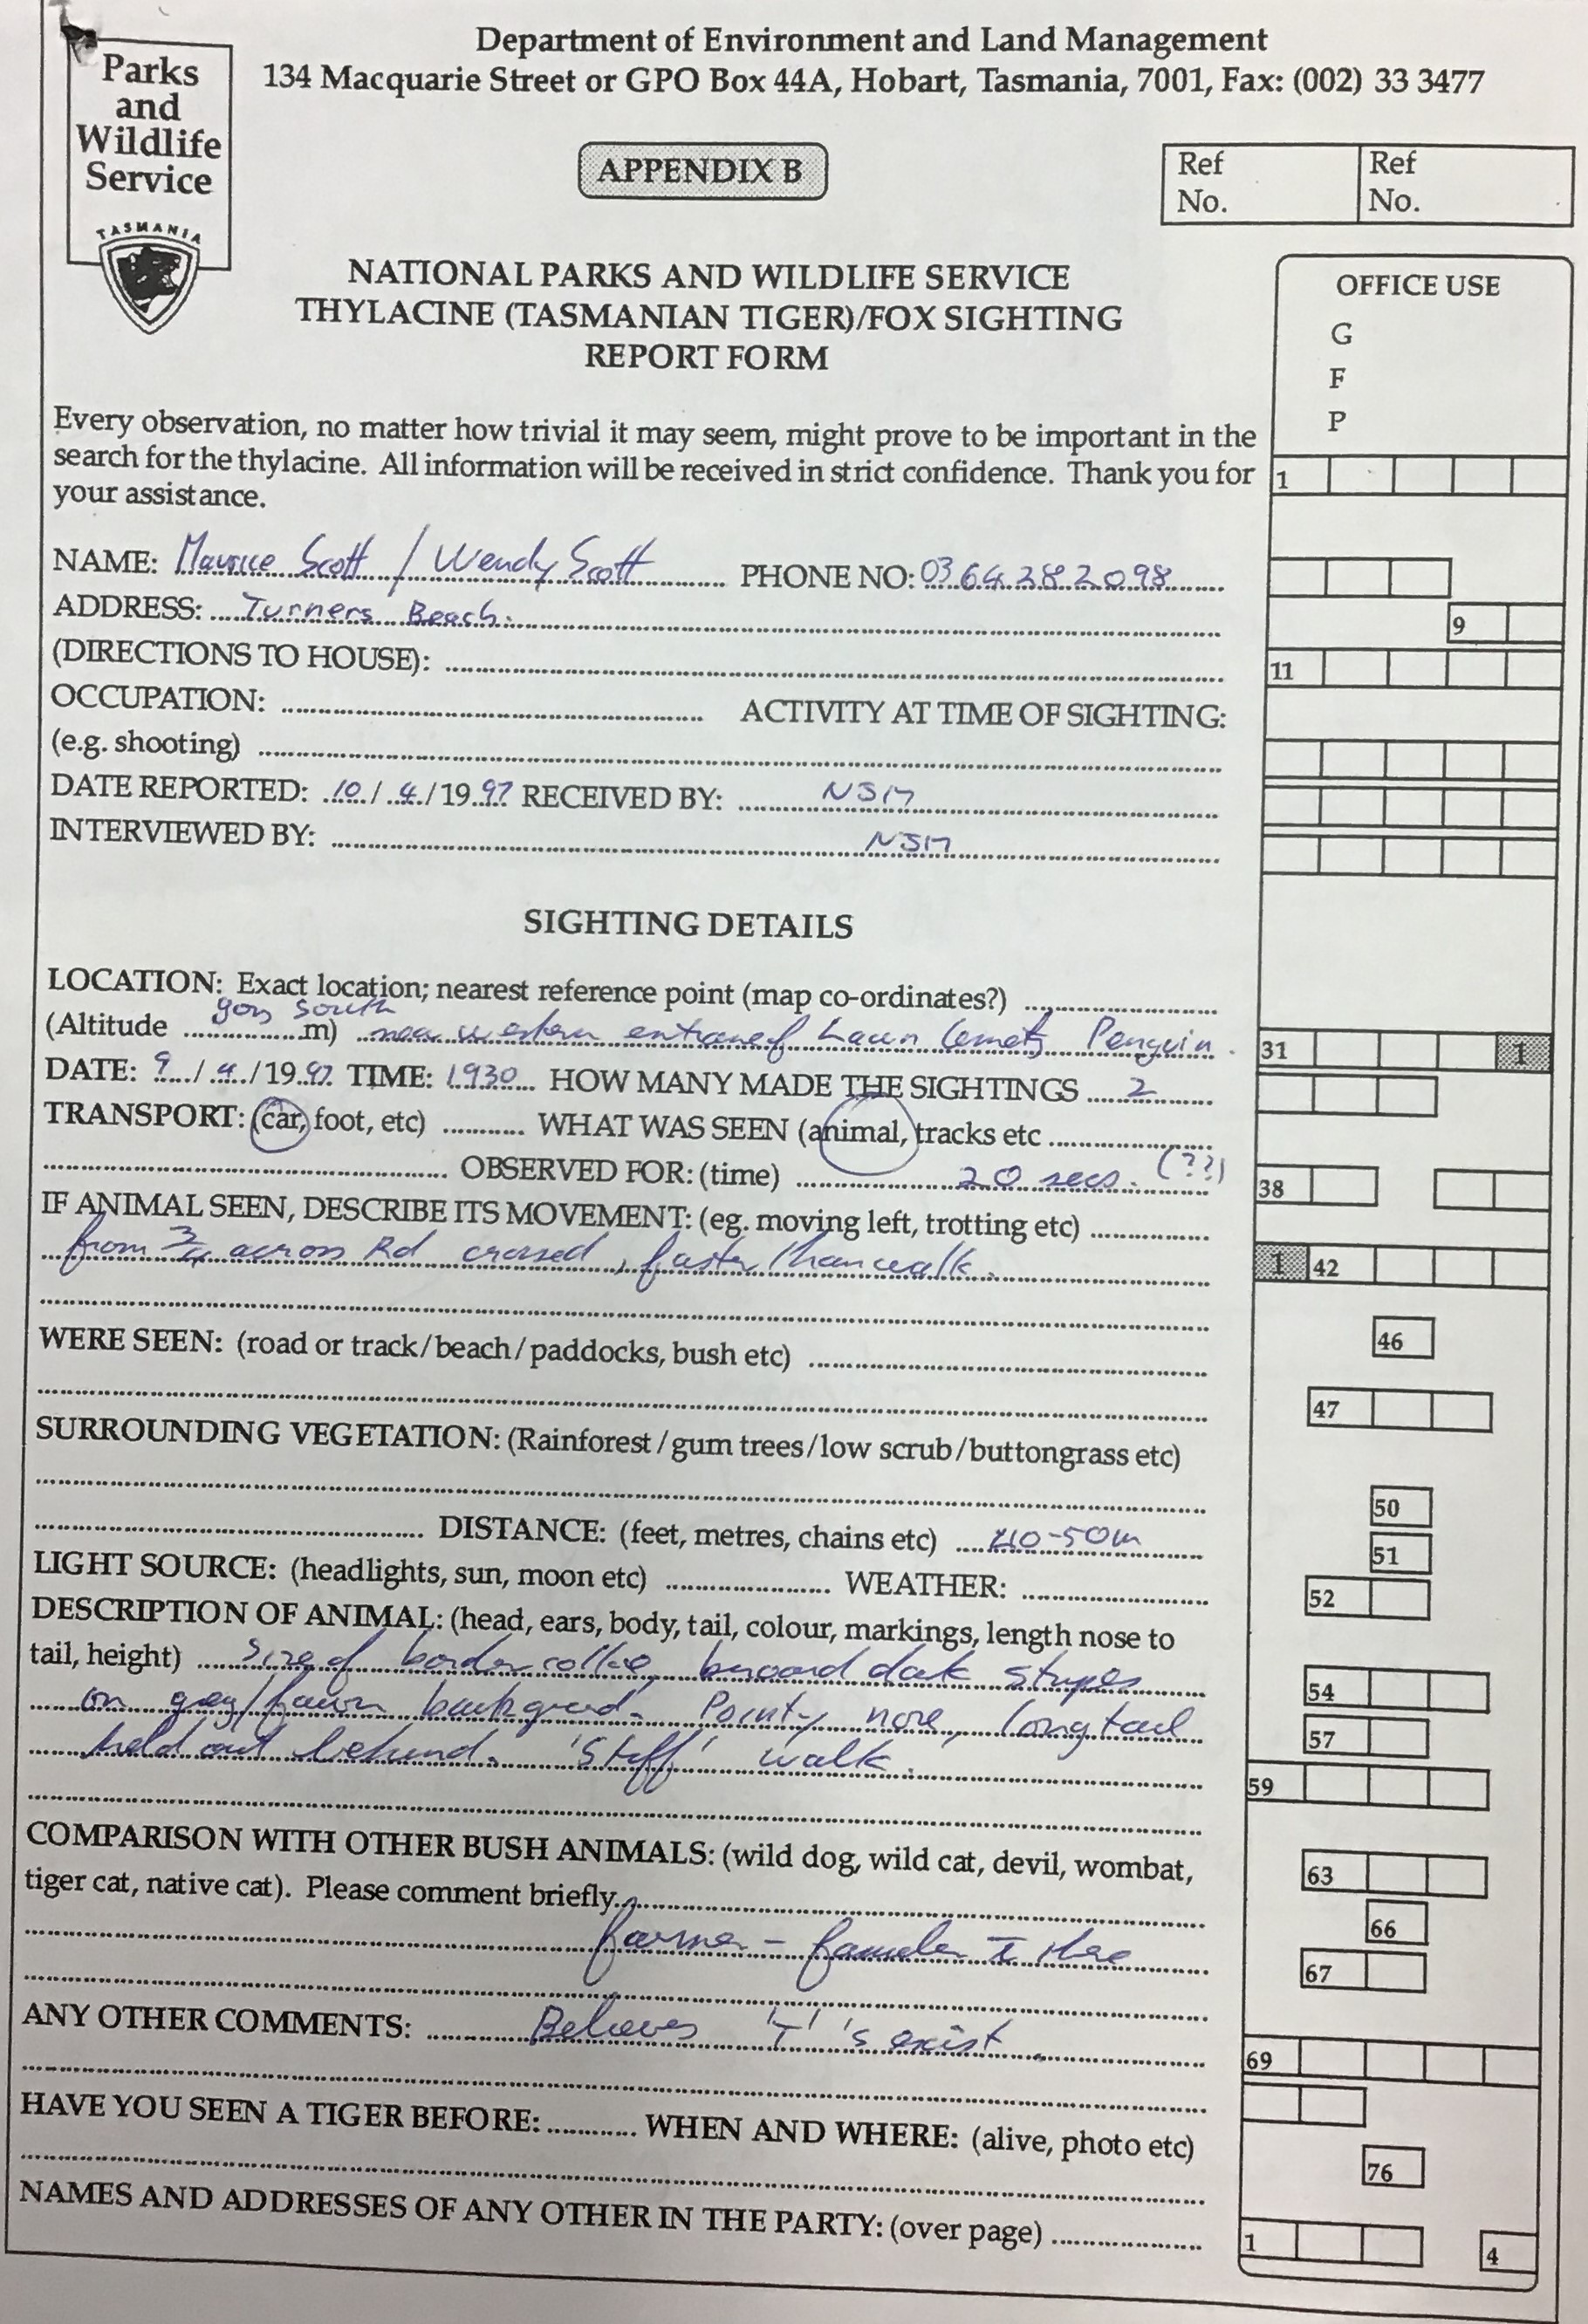 Department of Environment and Land Management
134 Macquarie Street or GPO Box 44A, Hobart, Tasmania, 7001, Fax: (002) 33 3477
Parks
and
Wildlife
Service
TASMANIA
APPENDIX B
Ref No.
Ref No.
NATIONAL PARKS AND WILDLIFE SERVICE
THYLACINE (TASMANIAN TIGER)/FOX SIGHTING
REPORT FORM
OFFICE USE
G
F
P
Every observation, no matter how trivial it may seem, might prove to be important in the
search for the thylacine. All information will be received in strict confidence. Thank you for
your assistance.
1
NAME: Maurice Scott / Wendy Scott PHONE NO: 03 64 28 2098
ADDRESS: Turners Beach.
9
(DIRECTIONS TO HOUSE):
11
OCCUPATION: ACTIVITY AT TIME OF SIGHTING:
(e.g. shooting)
DATE REPORTED: 10/4/1997 RECEIVED BY: NJM
INTERVIEWED BY: NJM
SIGHTING DETAILS
LOCATION: Exact location; nearest reference point (map co-ordinates?)
south
(Altitude m) near western entrance of Lawn Cemety Penguin.
31 1
DATE: 9/4/1997 TIME: 1930 HOW MANY MADE THE SIGHTINGS 2
TRANSPORT: (car, foot, etc) WHAT WAS SEEN (animal, tracks etc
OBSERVED FOR: (time) 20 secs. (??)
38
IF ANIMAL SEEN, DESCRIBE ITS MOVEMENT: (eg. moving left, trotting etc)
from 3/4 across Rd crossed, faster than walk.
1 42
WERE SEEN: (road or track/beach/paddocks, bush etc)
46
47
SURROUNDING VEGETATION: (Rainforest/gum trees/low scrub/buttongrass etc)
50
DISTANCE: (feet, metres, chains etc) 40-50m
51
LIGHT SOURCE: (headlights, sun, moon etc) WEATHER:
52
DESCRIPTION OF ANIMAL: (head, ears, body, tail, colour, markings, length nose to
tail, height) size of border collie, dark stripes
54
on grey/fawn background. Pointy nose, long tail
57
held out behind. 'Stiff' walk.
59
COMPARISON WITH OTHER BUSH ANIMALS: (wild dog, wild cat, devil, wombat,
63
tiger cat, native cat). Please comment briefly.
66
farmer - familar
67
ANY OTHER COMMENTS: Believes 'T' 's exist.
69
HAVE YOU SEEN A TIGER BEFORE: WHEN AND WHERE: (alive, photo etc)
76
NAMES AND ADDRESSES OF ANY OTHER IN THE PARTY: (over page)
1 4